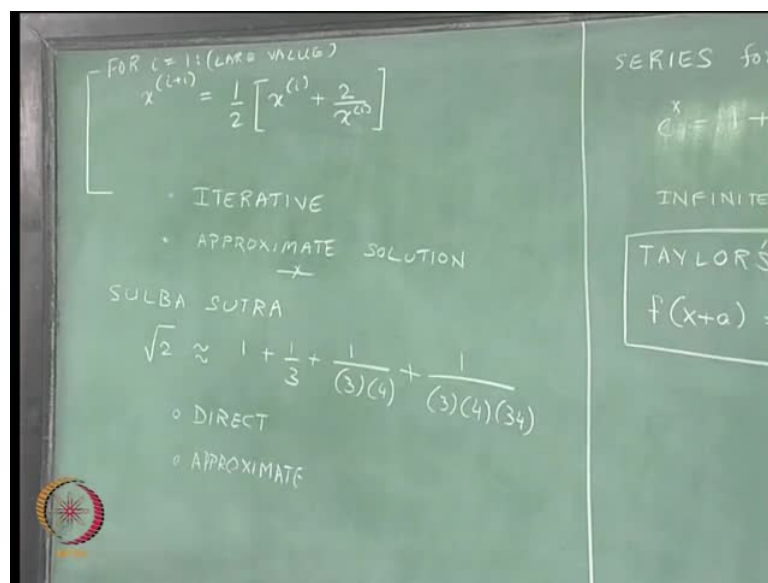 FOR i = 1:(LARG VALUE)
x^(i+1) = 1/2 [x^(i) + 2/x^(i)]
• ITERATIVE
• APPROXIMATE SOLUTION
x
SULBA SUTRA
√2 ≈ 1 + 1/3 + 1/(3)(4) + 1/(3)(4)(34)
o DIRECT
o APPROXIMATE
SERIES fo
e^x = 1 +
INFINITE
TAYLOR'S
f(x+a) =